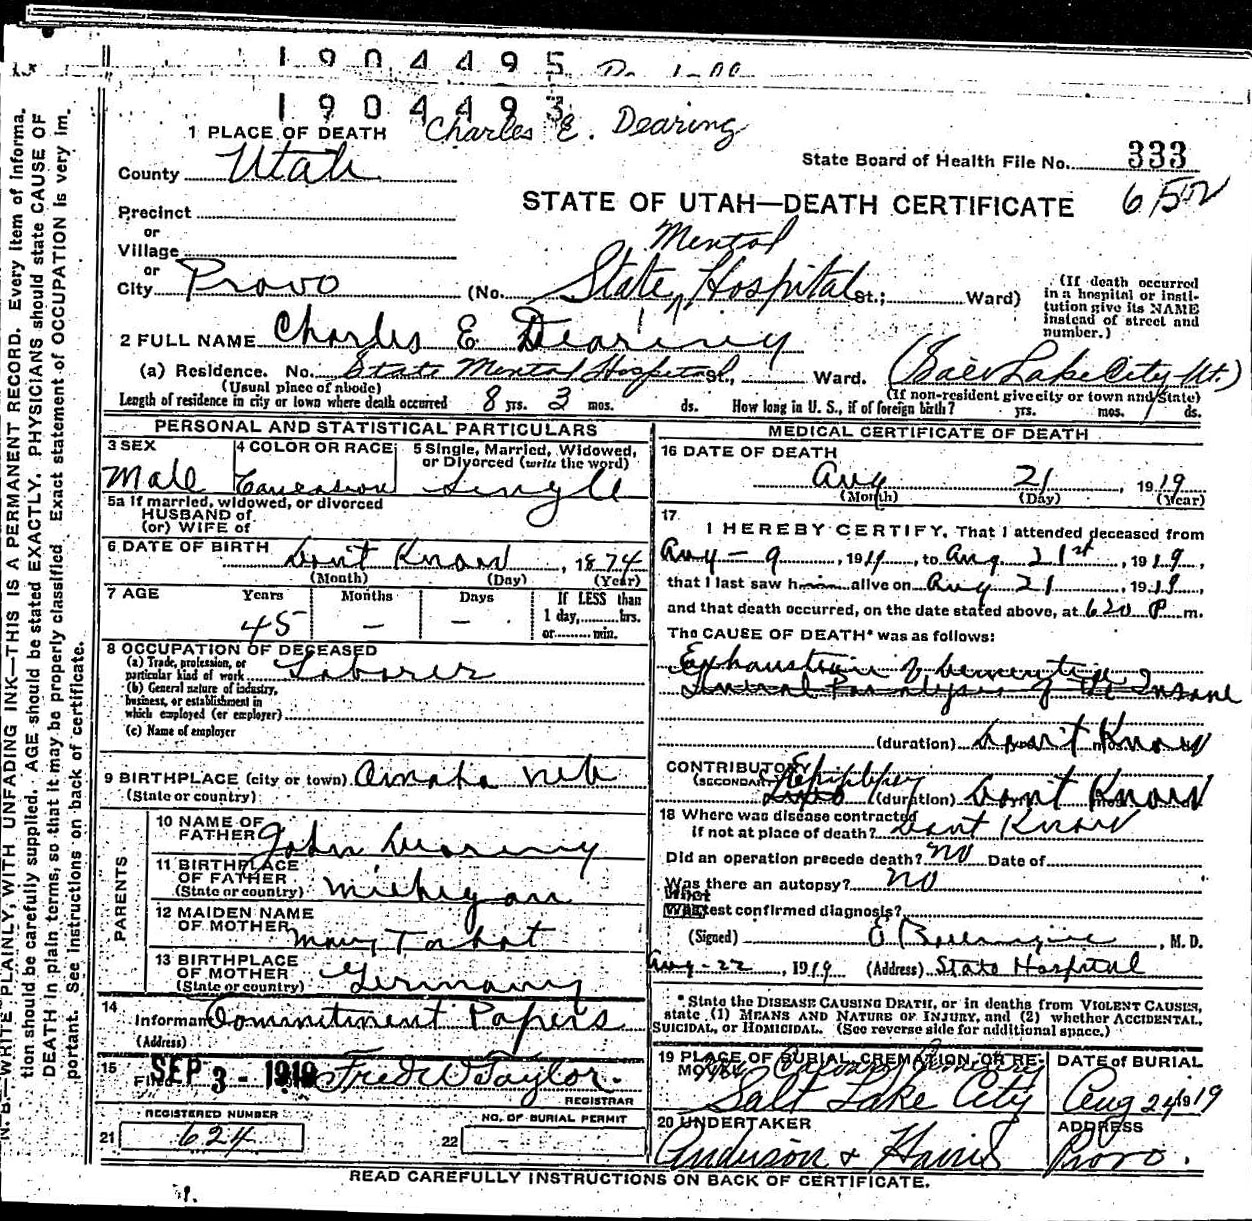 1904495
1904493
Charles E. Dearing
1 PLACE OF DEATH
State Board of Health File No. 333
County Utah
652
STATE OF UTAH—DEATH CERTIFICATE
Precinct
or
Village
or
City Provo (No. State Mental Hospital St.; Ward)
(If death occurred in a hospital or insti-
tution give its NAME
instead of street and
number.)
2 FULL NAME Charles E Dearing
(a) Residence. No. State Mental Hospital St., Ward. (Salt Lake City Ut.)
(Usual place of abode) (If non-resident give city or town and State)
Length of residence in city or town where death occurred 8 yrs. 3 mos. ds. How long in U. S., if of foreign birth? yrs. mos. ds.
PERSONAL AND STATISTICAL PARTICULARS
3 SEX
Male
4 COLOR OR RACE
Caucasion
5 Single, Married, Widowed,
or Divorced (write the word)
Single
5a If married, widowed, or divorced
HUSBAND of
(or) WIFE of
6 DATE OF BIRTH Don't Know, 1874
(Month) (Day) (Year)
7 AGE Years Months Days If LESS than
1 day, hrs.
or min.
45 – –
8 OCCUPATION OF DECEASED
(a) Trade, profession, or
particular kind of work Laborer
(b) General nature of industry,
business, or establishment in
which employed (or employer)
(c) Name of employer
9 BIRTHPLACE (city or town) Omaha Neb
(State or country)
PARENTS
10 NAME OF
FATHER John Dearing
11 BIRTHPLACE
OF FATHER
(State or country) Michigan
12 MAIDEN NAME
OF MOTHER Mary
13 BIRTHPLACE
OF MOTHER
(State or country) Germany
14
Informant Commitment Papers
(Address)
15
Filed SEP 3 - 1919 Fred W Taylor.
REGISTRAR
REGISTERED NUMBER
21 624
NO. OF BURIAL PERMIT
22 -
MEDICAL CERTIFICATE OF DEATH
16 DATE OF DEATH
Aug 21, 1919
(Month) (Day) (Year)
17
I HEREBY CERTIFY, That I attended deceased from
Aug - 9, 1911, to Aug 21st, 1919,
that I last saw him alive on Aug 21, 1919,
and that death occurred, on the date stated above, at 620 P m.
The CAUSE OF DEATH* was as follows:
Exhaustion of
General Paralysis of the Insane
(duration) Don't Know
CONTRIBUTORY Epilepsy
(SECONDARY) (duration) Don't Know
18 Where was disease contracted
if not at place of death? Dont Know
Did an operation precede death? No Date of
Was there an autopsy? No
What test confirmed diagnosis?
(Signed) , M. D.
Aug - 22, 1919 (Address) State Hospital
* State the DISEASE CAUSING DEATH, or in deaths from VIOLENT CAUSES,
state (1) MEANS AND NATURE OF INJURY, and (2) whether ACCIDENTAL,
SUICIDAL, or HOMICIDAL. (See reverse side for additional space.)
19 PLACE OF BURIAL, CREMATION, OR RE-
MOVAL Calvary Cemetery
Salt Lake City
DATE of BURIAL
Aug 24 1919
20 UNDERTAKER
Anderson + Harris
ADDRESS
Provo.
READ CAREFULLY INSTRUCTIONS ON BACK OF CERTIFICATE.
N. B.—WRITE PLAINLY, WITH UNFADING INK—THIS IS A PERMANENT RECORD. Every item of informa-
tion should be carefully supplied. AGE should be stated EXACTLY. PHYSICIANS should state CAUSE OF
DEATH in plain terms, so that it may be properly classified. Exact statement of OCCUPATION is very im-
portant. See instructions on back of certificate.